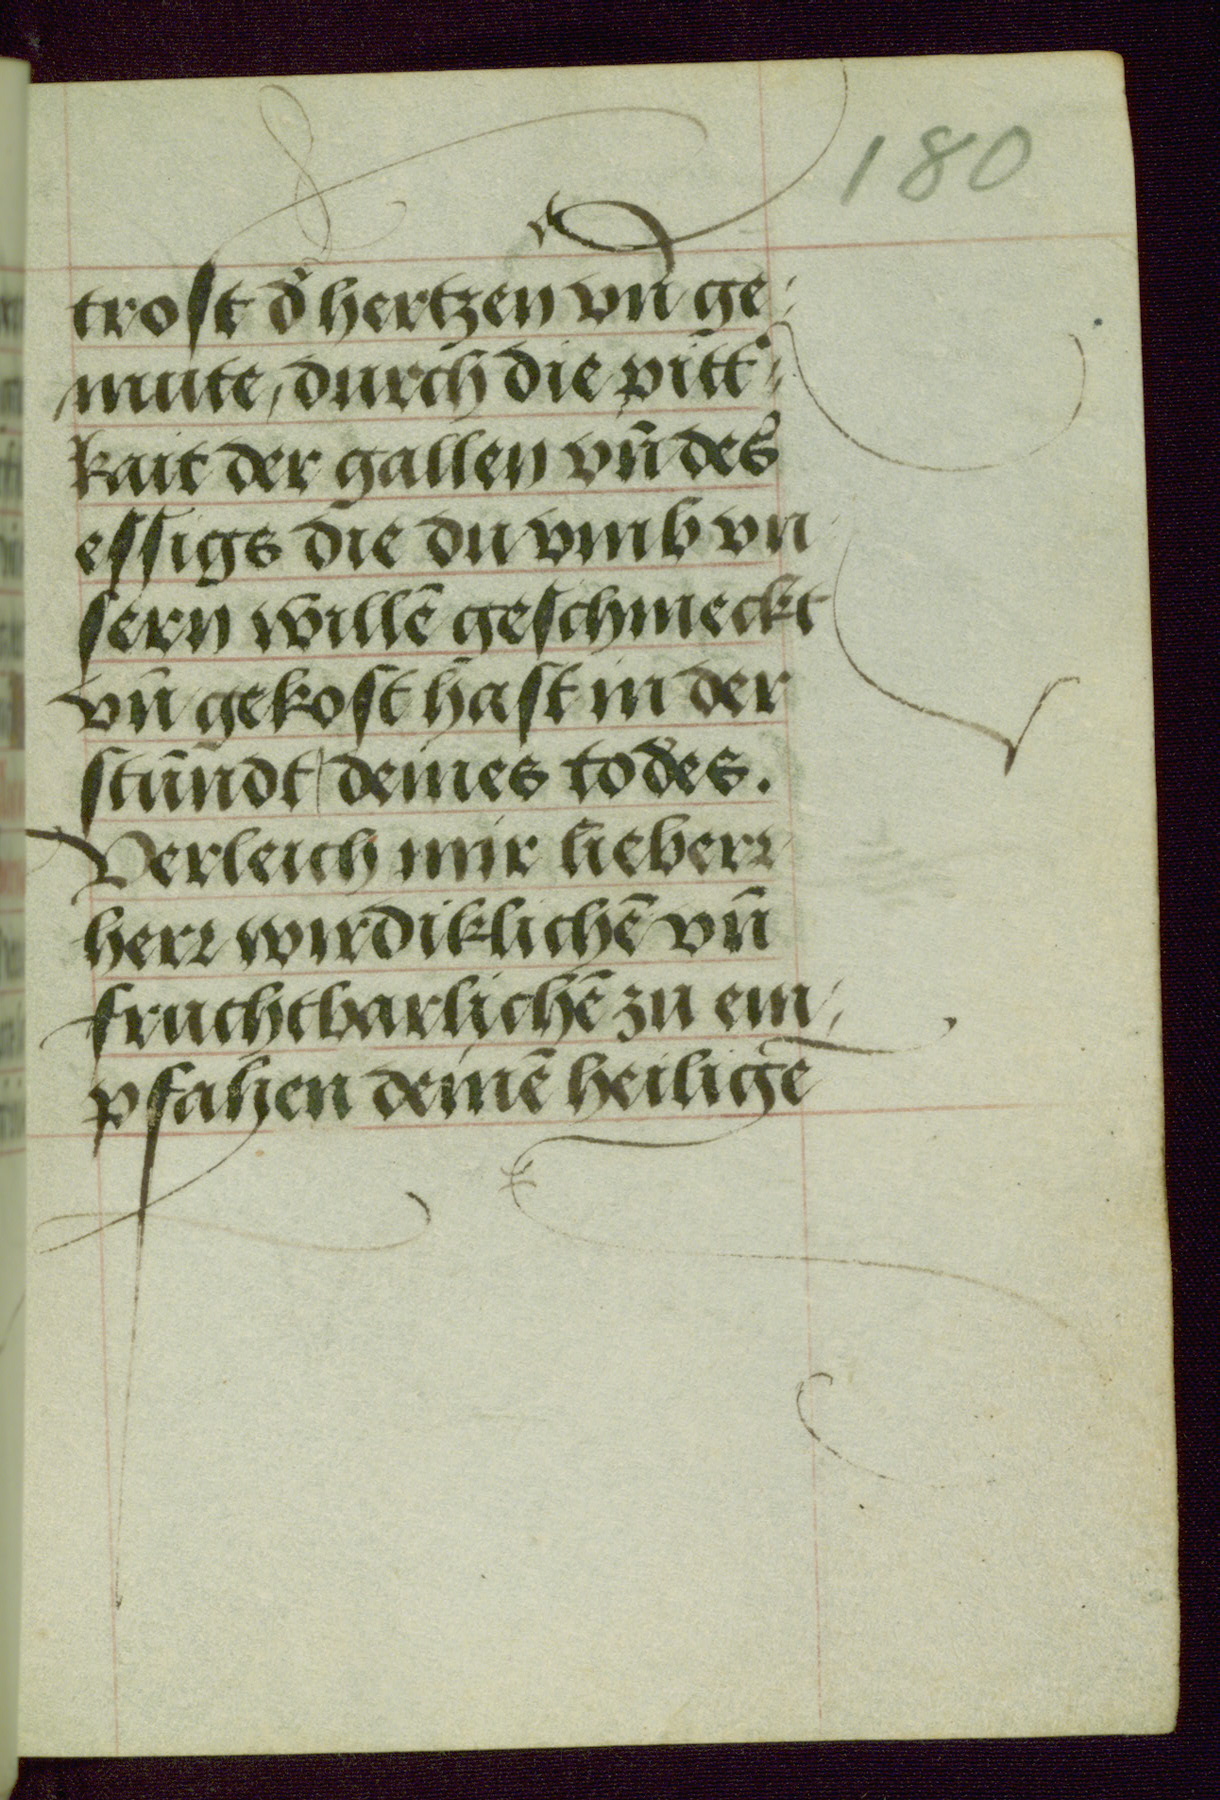 180
trost d̕ hertzen vn̄ ge⸗
mute, durch die pitt̕⸗
kait der gallen vn̄ des
essigs die du vmb vn
sern willē geschmeckt
vn̄ gekost hast in der
stūndt deines todes.
Verleich mir lieberr
herr wirdiklichē vn̄
fruchtbarlichē zu em⸗
pfahen deinē heilige